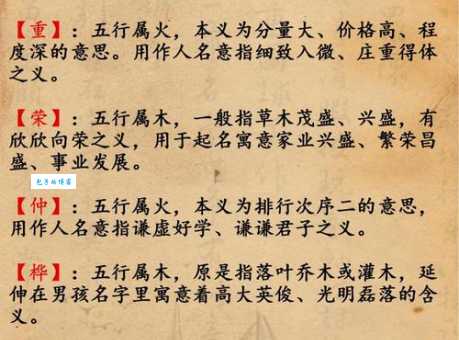 【重】：五行属火，本义为分量大、价格高、程
度深的意思。用作人名意指细致入微、庄重得体
之义。
【荣】：五行属木，一般指草木茂盛、兴盛，有
欣欣向荣之义，用于起名寓意家业兴盛、繁荣昌
盛、事业发展。
【仲】：五行属火，本义为排行次序二的意思，
用作人名意指谦虚好学、谦谦君子之义。
【桦】：五行属木，原是指落叶乔木或灌木，延
伸在男孩名字里寓意着高大英俊、光明磊落的含
义。